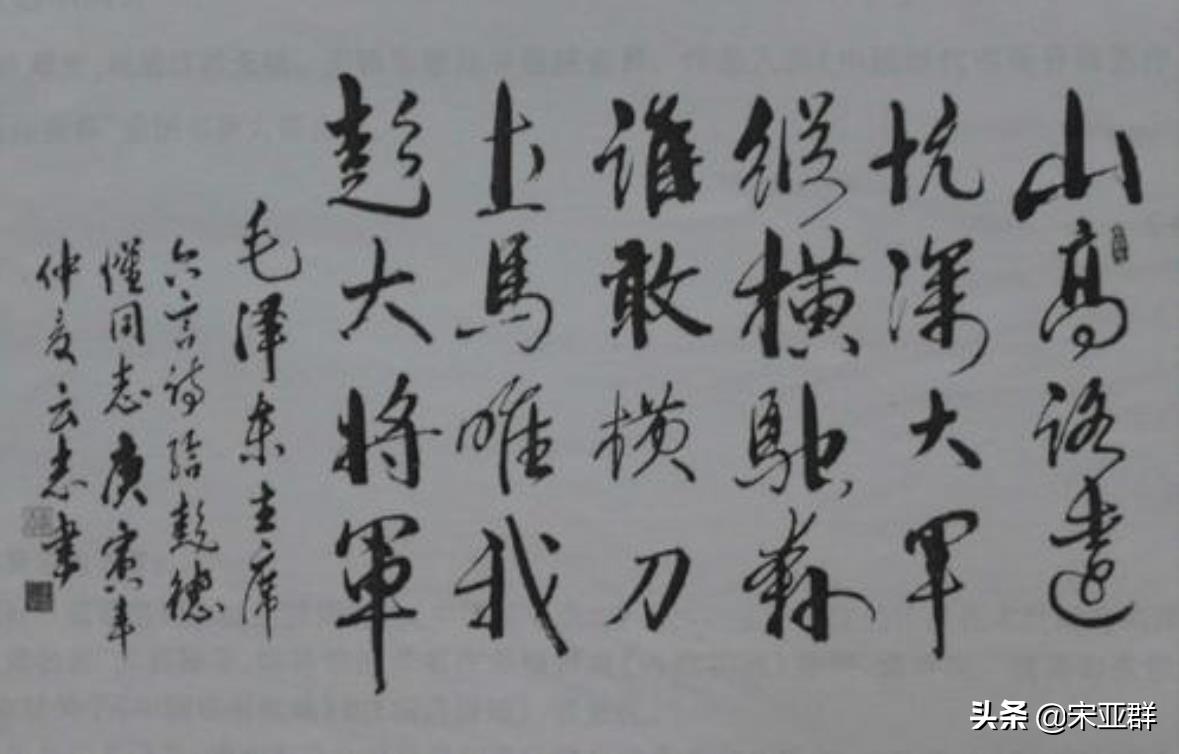 山高路遥
坑深大军
縱横馳奔
誰敢横刀
上馬唯我
彭大将軍
毛澤东主席
六言诗给彭德
懷同志庚寅年
仲夏云志書
头条 @宋亚群